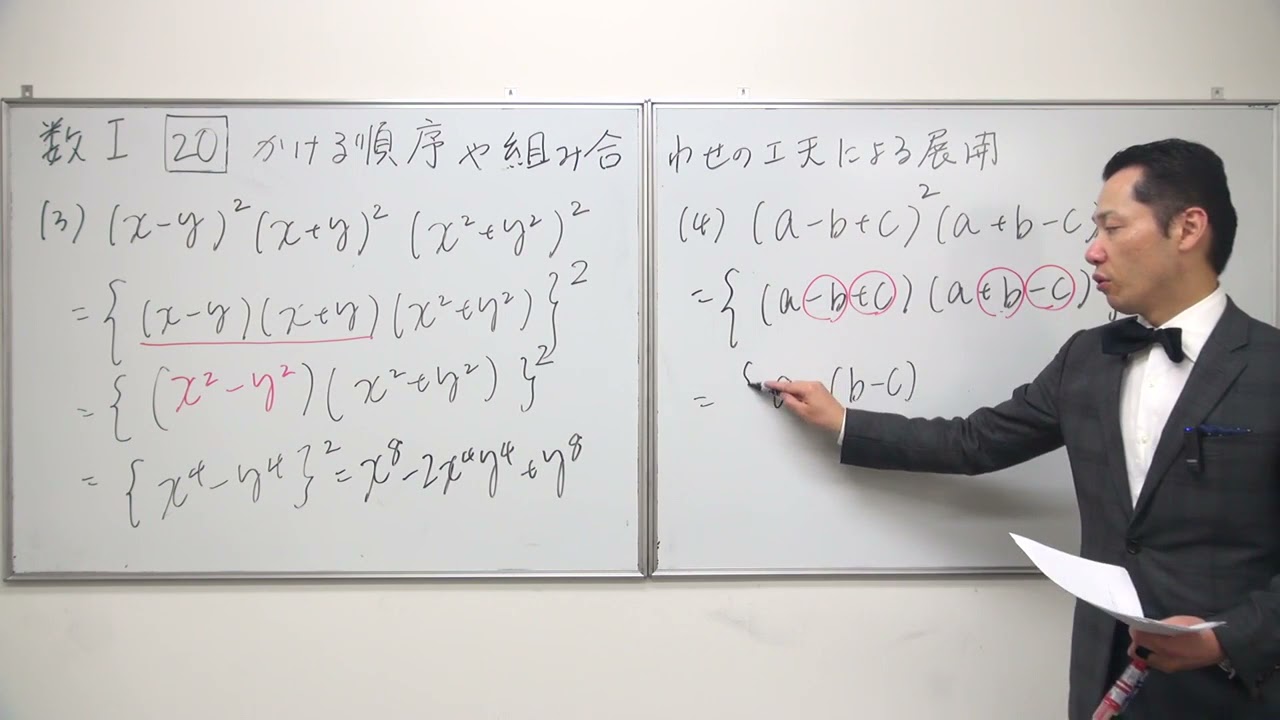 数I 20 かける順序や組み合わせの工夫による展開
(3) (x-y)²(x+y)² (x²+y²)²
={(x-y)(x+y)(x²+y²)}²
={(x²-y²)(x²+y²)}²
={x⁴-y⁴}²=x⁸-2x⁴y⁴+y⁸
(4) (a-b+c)²(a+b-c)
={(a-b+c)(a+b-c)
= { (b-c)